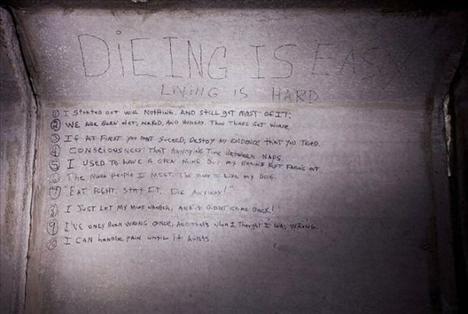 DIEING IS EASY
LIVING IS HARD
① I STARTED OUT WITH NOTHING, AND STILL GOT MOST OF IT;
② WE ARE BORN WET, NAKED, AND HUNGRY. THEN THINGS GET WORSE
③ IF AT FIRST YOU DON'T SUCCEED, DESTROY ALL EVIDENCE THAT YOU TRIED.
④ CONSCIOUSNESS: THAT ANNOYING TIME BETWEEN NAPS
⑤ I USED TO HAVE A OPEN MIND BUT MY BRAINS KEPT FALLING OUT
⑥ THE MORE PEOPLE I MEET, THE MORE I LIKE MY DOG.
⑦ "EAT RIGHT, STAY FIT, DIE ANYWAY!"
⑧ I JUST LET MY MIND WANDER, AND IT DIDN'T COME BACK!
⑨ I'VE ONLY BEEN WRONG ONCE, AND THAT'S WHEN I THOUGHT I WAS WRONG.
I CAN HANDLE PAIN UNTIL IT HURTS